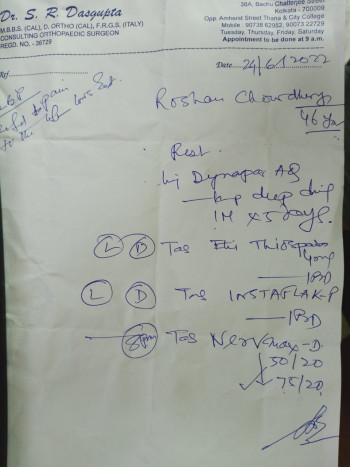 Dr. S. R. Dasgupta
M.B.B.S. (CAL), D. ORTHO (CAL), F.R.G.S. (ITALY)
CONSULTING ORTHOPAEDIC SURGEON
REGD. NO. - 36729
36A, Bachu Chatterjee Street
Kolkata - 700009
Opp. Amherst Street Thana & City College
Mobile : 90738 62982, 90073 22729
Tuesday, Thursday, Friday, Saturday
Appointment to be done at 9 a.m.
Ref
Date 24/6/2022
LBP
pain
to the left
Roshan Chowdhury
46 yr
Rest
Inj Dynapar AQ
deep
IM x 5 days.
L D Tab Thiospas
4mg
1BD
L D Tab INSTAFLAK-P
1BD
8pm Tab Nervmax-D
50/20
75/20